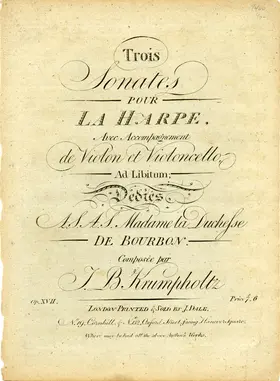 Trois
Sonates
POUR
LA HARPE.
Avec Accompagnement
de Violon et Violoncello,
Ad Libitum.
Dediés
A S. A. S. Madame la Duchesse
DE BOURBON.
Composée par
J. B. Krumpholtz
Op. XVII.
Prix 7,,6
LONDON PRINTED & SOLD BY J. DALE,
No. 19, Cornhill, & No. 132, Oxford Street, facing Hanover Square,
Where may be had all the above Author's Works.